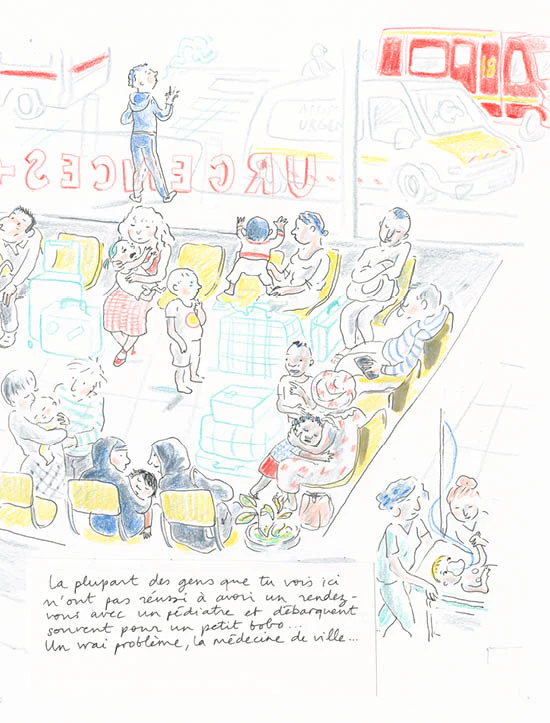 18
URGEN
URGENCES +
La plupart des gens que tu vois ici
n'ont pas réussi à avoir un rendez-
vous avec un pédiatre et débarquent
souvent pour un petit bobo...
Un vrai problème, la médecine de ville...